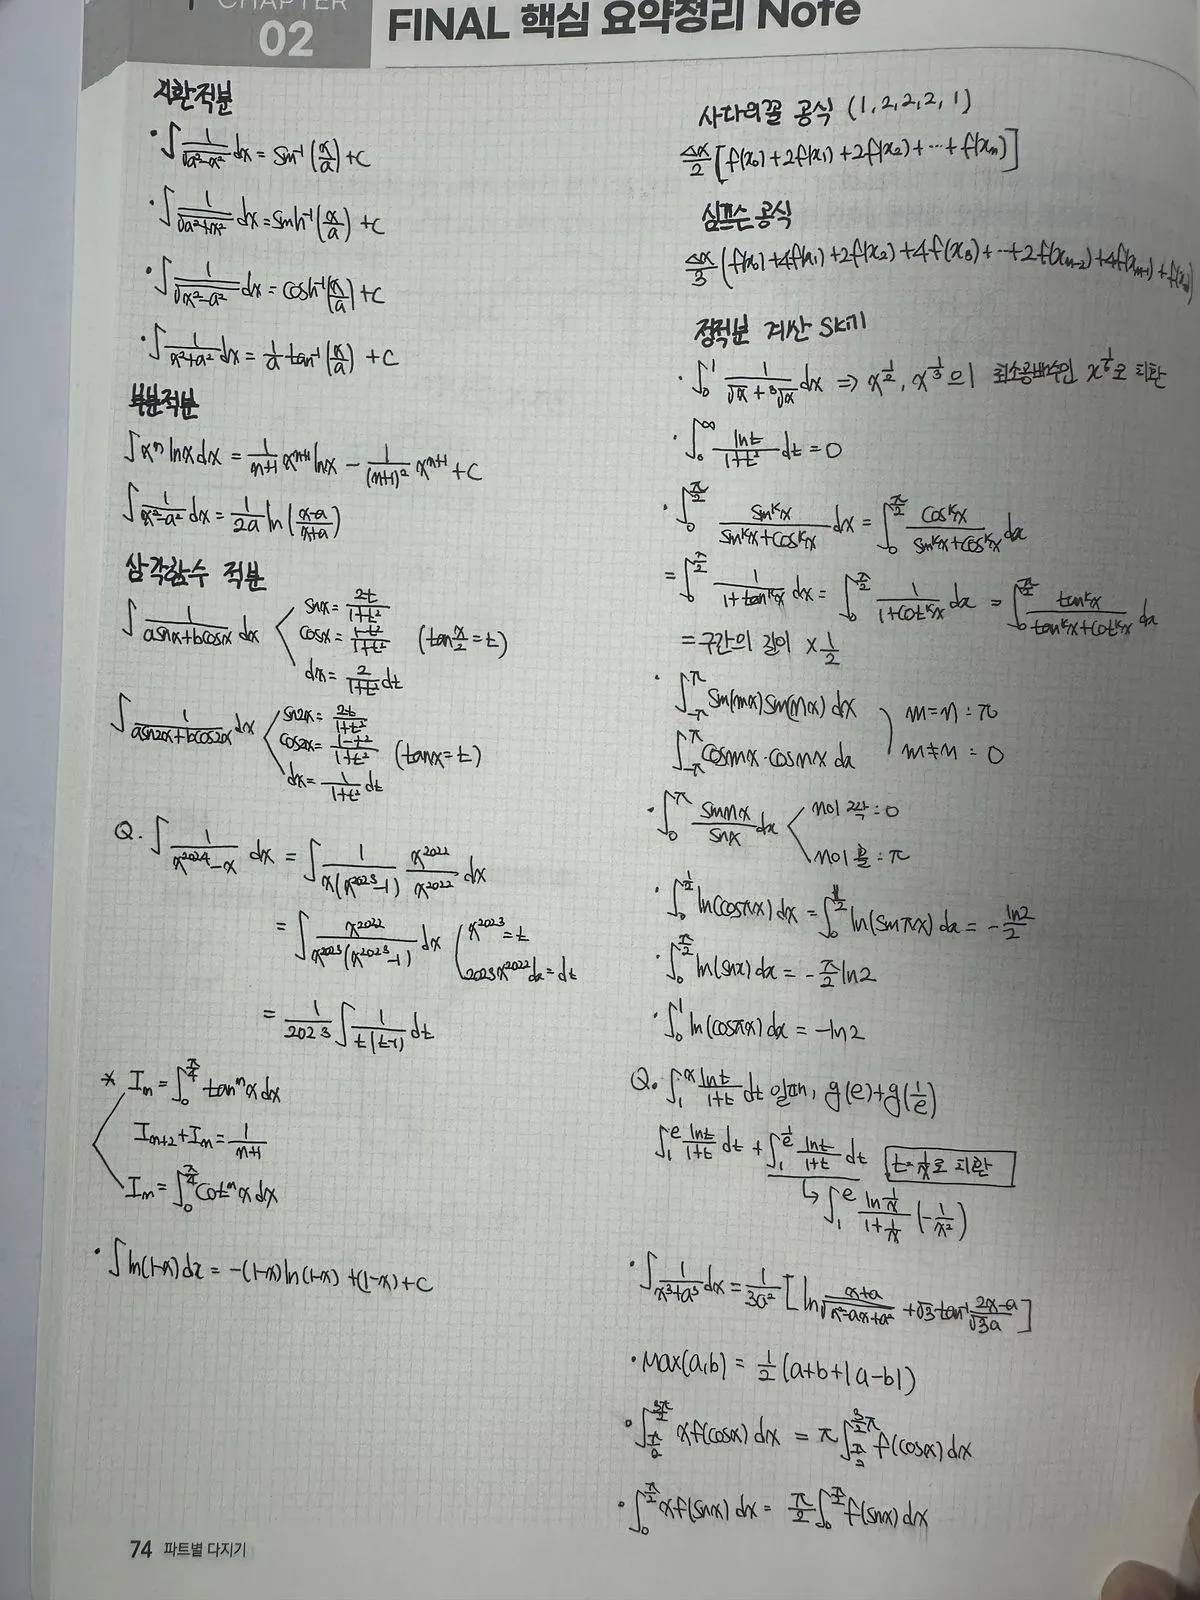 CHAPTER
02
FINAL 핵심 요약정리 Note
치환적분
• ∫ 1/√(a²-x²) dx = sin⁻¹(x/a) + C
• ∫ 1/√(a²+x²) dx = sinh⁻¹(x/a) + C
• ∫ 1/√(x²-a²) dx = cosh⁻¹(x/a) + C
• ∫ 1/(x²+a²) dx = 1/a tan⁻¹(x/a) + C
부분적분
∫xⁿ lnx dx = 1/(n+1) xⁿ⁺¹ lnx - 1/(n+1)² xⁿ⁺¹ + C
∫ 1/(x²-a²) dx = 1/2a ln((x-a)/(x+a))
삼각함수 적분
∫ 1/(asinx+bcosx) dx
sinx = 2t/(1+t²)
cosx = (1-t²)/(1+t²) (tan x/2 = t)
dx = 2/(1+t²) dt
∫ 1/(asin2x+bcos2x) dx
sin2x = 2t/(1+t²)
cos2x = (1-t²)/(1+t²) (tanx = t)
dx = 1/(1+t²) dt
Q. ∫ 1/(x²⁰²⁴-x) dx = ∫ 1/(x(x²⁰²³-1)) x²⁰²²/x²⁰²² dx
= ∫ x²⁰²²/(x²⁰²³(x²⁰²³-1)) dx
x²⁰²³ = t
2023x²⁰²²dx = dt
= 1/2023 ∫ 1/(t(t-1)) dt
* Iₙ = ∫₀^(π/4) tanⁿx dx
Iₙ₊₂ + Iₙ = 1/(n+1)
Iₙ = ∫₀^(π/4) cotⁿx dx
• ∫ln(1-x)dx = -(1-x)ln(1-x) + (1-x) + C
사다리꼴 공식 (1,2,2,2,1)
Δx/2 [f(x₀)+2f(x₁)+2f(x₂)+⋯+f(xₙ)]
심프슨 공식
Δx/3 (f(x₀)+4f(x₁)+2f(x₂)+4f(x₃)+⋯+2f(xₙ₋₂)+4f(xₙ₋₁)+f(xₙ))
정적분 계산 Skill
• ∫₀¹ 1/(√x+³√x) dx ⇒ x^(1/2), x^(1/3)의 최소공배수인 x^(1/6)로 치환
• ∫₀^∞ lnt/(1+t²) dt = 0
• ∫₀^(π/2) sinᵏx/(sinᵏx+cosᵏx) dx = ∫₀^(π/2) cosᵏx/(sinᵏx+cosᵏx) dx
= ∫₀^(π/2) 1/(1+tanᵏx) dx = ∫₀^(π/2) 1/(1+cotᵏx) dx = ∫₀^(π/2) tanᵏx/(tanᵏx+cotᵏx) dx
= 구간의 길이 × 1/2
• ∫₋π^π sin(mx)sin(nx) dx
m=n : π
∫₋π^π cosmx·cosnx dx
m≠n : 0
• ∫₀^π sinnx/sinx dx
n이 짝 : 0
n이 홀 : π
• ∫₀^(1/2) ln(cosπx)dx = ∫₀^(1/2) ln(sinπx)dx = -ln2/2
• ∫₀^(π/2) ln(sinx)dx = -π/2 ln2
• ∫₀¹ ln(cosπx)dx = -ln2
Q. ∫₁ˣ lnt/(1+t) dt 일때, g(e)+g(1/e)
∫₁ᵉ lnt/(1+t) dt + ∫₁^(1/e) lnt/(1+t) dt t=1/x로 치환
↳ ∫₁ᵉ ln(1/x)/(1+1/x) (-1/x²)
• ∫ 1/(x³+a³) dx = 1/3a² [ln (x+a)/√(x²-ax+a²) + √3 tan⁻¹ (2x-a)/(√3a)]
• Max(a,b) = 1/2 (a+b+|a-b|)
• ∫_(π/2)^(3π/2) xf(cosx)dx = π∫_(π/2)^(3/2 π) f(cosx)dx
• ∫₀^(π/2) xf(sinx)dx = π/2 ∫₀^(π/2) f(sinx)dx
74 파트별 다지기